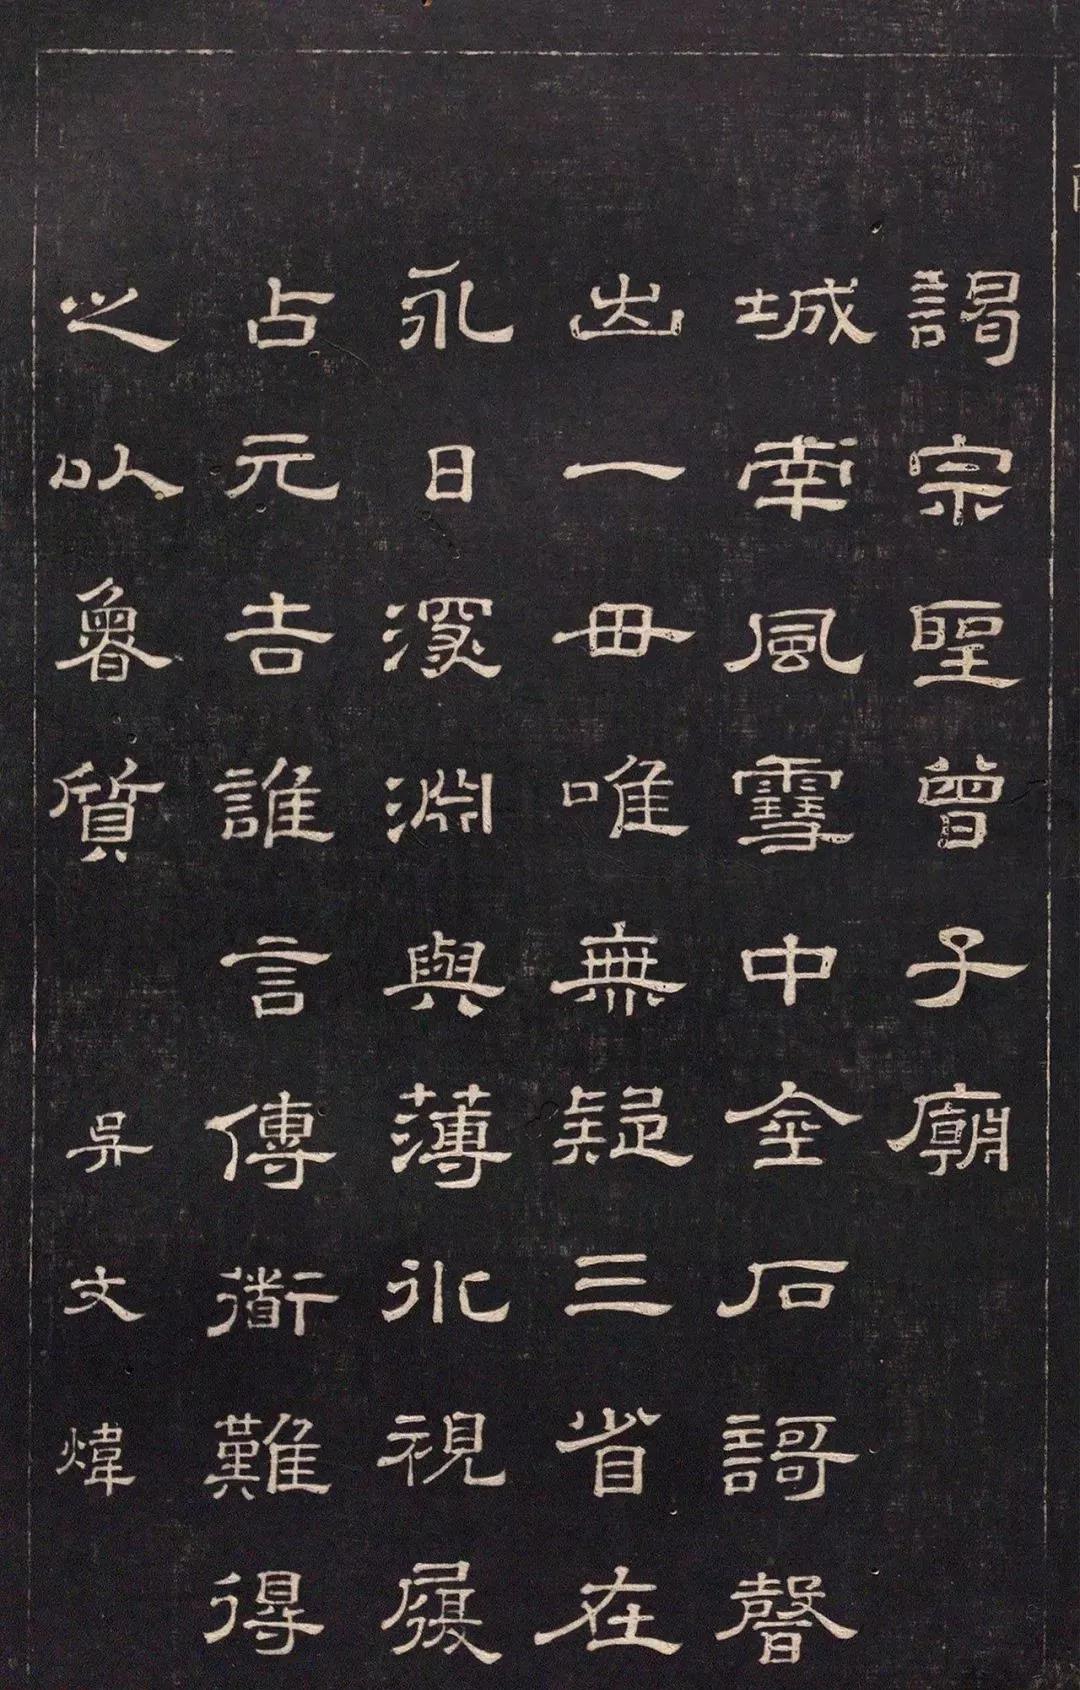 謁宗聖曾子廟
城南風雪中金石謌聲
出一毋唯無疑三省在
永日深淵與薄氷視履
占元吉誰言傳衟難得
之以魯質
吳文煒